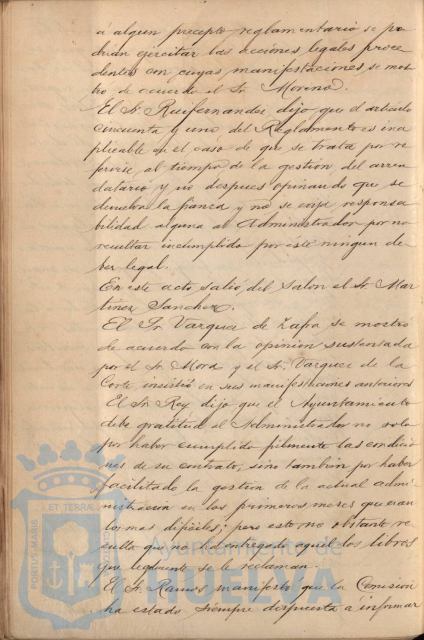 á algun precepto reglamentario se po
drian ejercitar las acciones legales proce
dentes con cuyas manifestaciones se mos
tró de acuerdo el Sr. Morino.
El Sr. Ruifernandez dijo que el artículo
cincuenta y uno del Reglamento es ina
plicable en el caso de que se trata por re
ferirse al tiempo de la gestion del arren
datario y no despues opinando que se
devuelva la fianza y no se exija responsa
bilidad alguna al Administrador por no
resultar incumplido por este ningun de
ber legal.
En este acto salió del Salon el Sr. Mar
tinez Sanchez.
El Sr. Vazquez de Zafra se mostró
de acuerdo con la opinion sustentada
por el Sr. Mora y el Sr. Vazquez de la
Corte insistió en sus manifestaciones anteriores
El Sr. Rey dijo que el Ayuntamiento
debe gratitud al Administrador no solo
por haber cumplido fielmente las condicio
nes de su contrato, sino tambien por haber
facilitado la gestion de la actual admi
nistracion en los primeros meses que eran
los mas dificiles; pero esto no obstante re
sulta que no ha entregado aquel los libros
que legalmente se le reclaman.
El Sr. Ramos manifestó que la Comision
ha estado siempre dispuesta a informar
PORTUS MARIS
ET TERRÆ
CUSTODIA
Ayuntamiento de
HUELVA